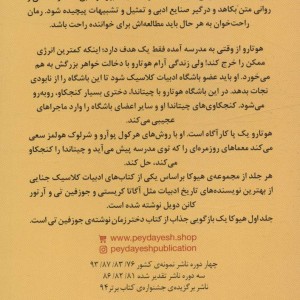 روانی متن بکاهد و درگیر صنایع ادبی و تمثیل و تشبیهات پیچیده شود. رمان
راحت‌خوان به هر حال باید مطالعه‌اش برای خواننده راحت باشد.
هوتارو از وقتی به مدرسه آمده فقط یک هدف دارد؛ اینکه کمترین انرژی
ممکن را خرج کند! ولی زندگی آرام هوتارو با دخالت خواهر بزرگش به هم
می‌خورد. او باید عضو باشگاه ادبیات کلاسیک شود تا این باشگاه را از نابودی
نجات بدهد. در این باشگاه هوتارو با چیتاندا، دختری بسیار کنجکاو، روبه‌رو
می‌شود. کنجکاوی‌های چیتاندا او و سایر اعضای باشگاه را وارد ماجراهای
عجیبی می‌کند.
هوتارو یک پا کارآگاه است. او با روش‌های هرکول پوآرو و شرلوک هولمز سعی
می‌کند معماهای روزمره‌ای را که توی مدرسه پیش می‌آید و چیتاندا را کنجکاو
می‌کند، حل کند.
هر جلد از مجموعه‌ی هیوکا براساس یکی از کتاب‌های ادبیات کلاسیک جنایی
از بهترین نویسنده‌های تاریخ ادبیات مثل آگاتا کریستی و جوزفین تی و آرتور
کانن دویل نوشته شده است.
جلد اول هیوکا یک بازگویی جذاب از کتاب دختر زمان نوشته‌ی جوزفین تی است.
www.peydayesh.shop
peydayeshpublication
چهار دوره ناشر نمونه‌ی کشور ۷۶/ ۸۳/ ۸۷/ ۹۳
سه دوره ناشر تقدیر شده ۸۱/ ۸۲/ ۸۶
ناشر برگزیده‌ی جشنواره‌ی کتاب برتر ۹۴